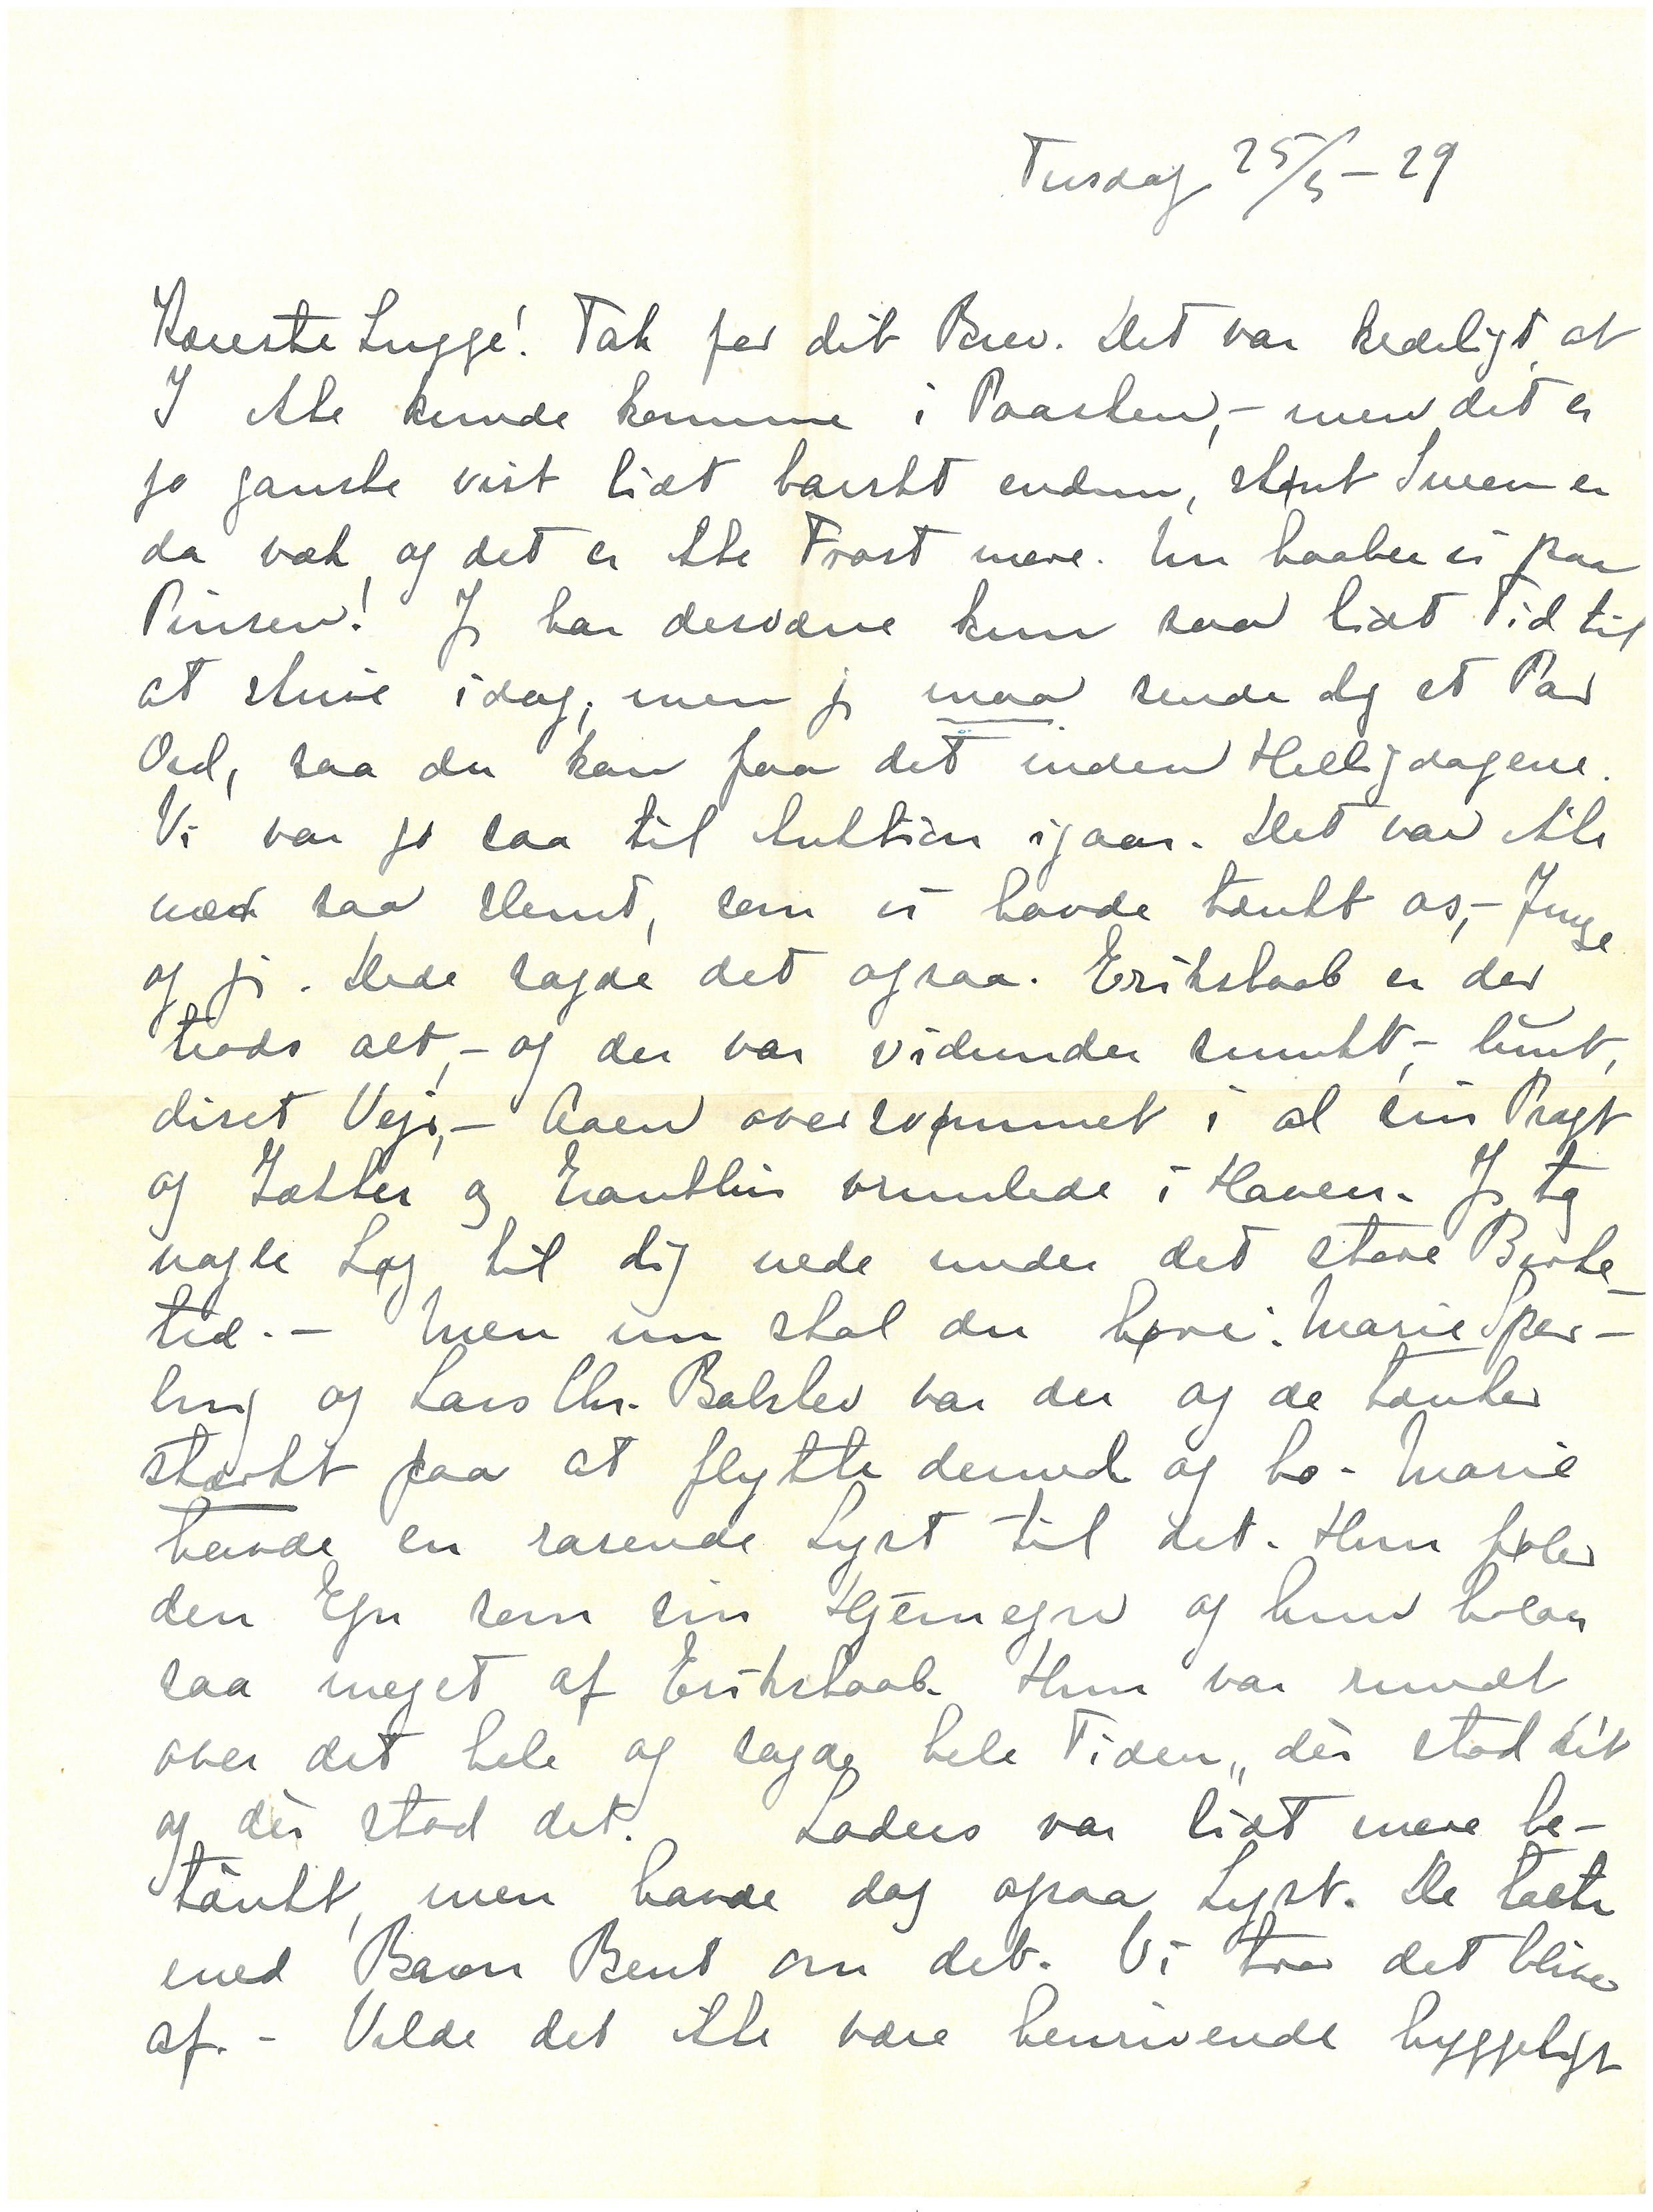 Tirsdag 25/3 – 29
Kæreste Lugge! Tak for dit Brev. Det var kedeligt, at
I ikke kunde komme i Paasken, – men det er
jo ganske vist lidt barskt endnu, skønt Sneen er
da væk og det er ikke Frost mere. Nu haaber vi paa
Pinsen! Jeg har desværre kun saa lidt Tid til
at skrive idag, men jeg maa sende dig et Par
Ord, saa du kan faa det inden Helligdagene.
Vi var jo saa til Auktion igaar. Det var ikke
nær saa slemt, som vi havde tænkt os, – Junge
og jeg. Dede sagde det ogsaa. Erikshaab er der
trods alt, – og der var vidunder smukt, – lunt,
diset Vejr, – Aaen oversvømmet i al sin Pragt
og Gækker og Eranthis vrimlede i Haven. Jeg tog
nogle Løg til dig nede under det store Birke-
træ. – Men nu skal du høre: Marie Sper-
ling og Lars Chr. Balslev var der og de tænker
stærkt paa at flytte derned og bo. Marie
havde en rasende Lyst til det. Hun føler
den Egn som sin Hjemegn og hun holder
saa meget af Erikshaab. Hun var rundt
over det hele og sagde hele Tiden „dèr stod dit
og dèr stod det. Laders var lidt mere be-
tænkt, men havde dog ogsaa Lyst. De talte
med Baron Bent om det. Vi tror det bliver
af. – Vilde det ikke være henrivende hyggeligt